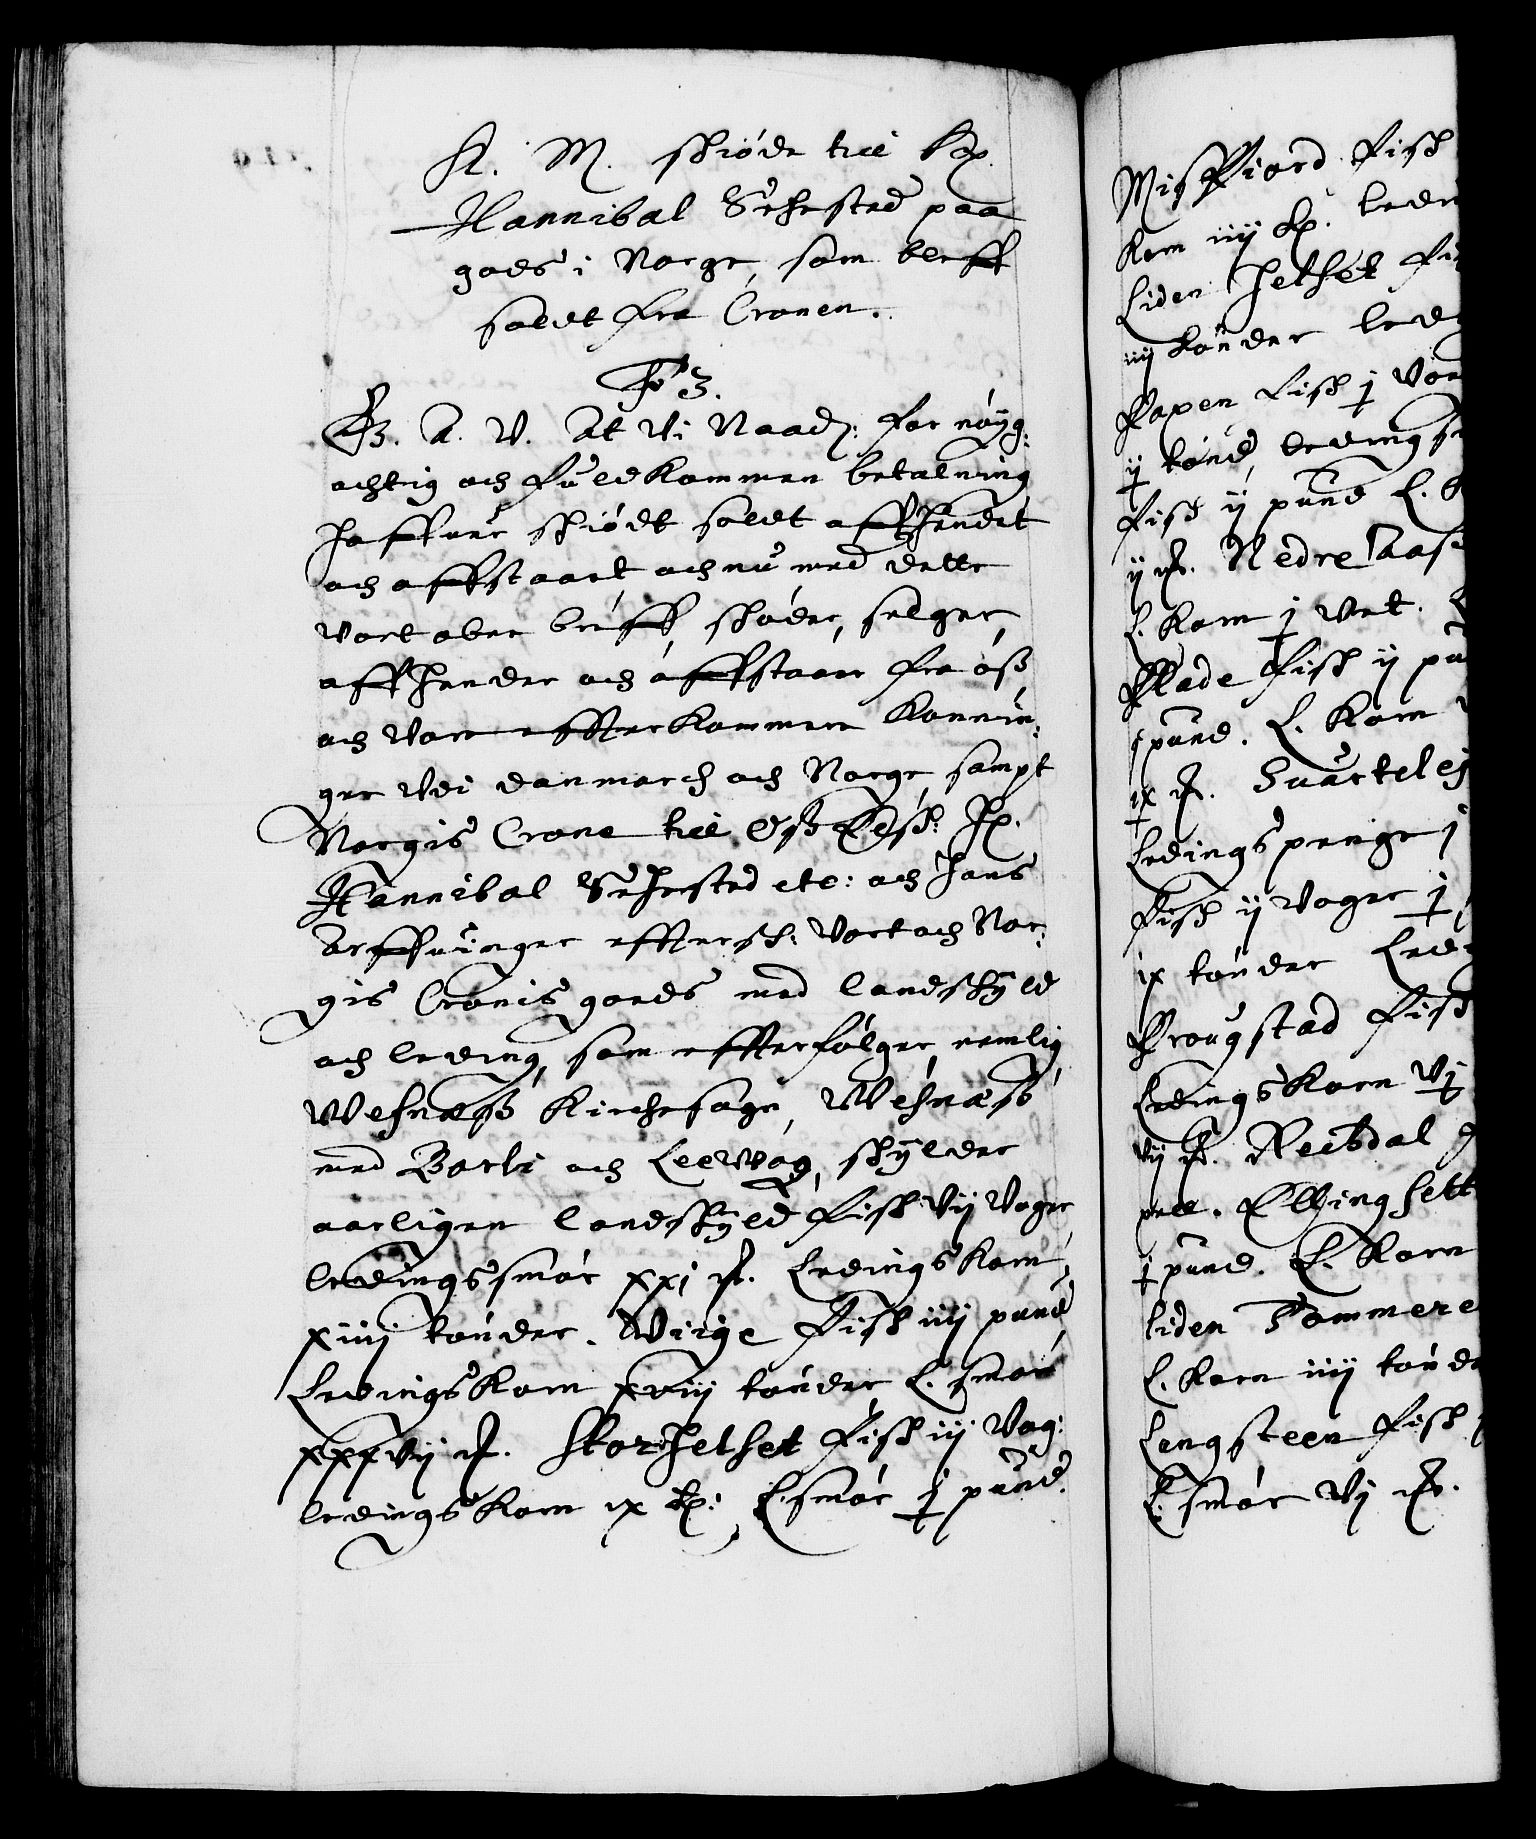 K. M. skiøde till Hr.
Hannibal Sehested paa
gods i Norge, som bleff
soldt fra Cronen.
F 3.
G. A. V. At Vi Naadz: for nøyg-
achtig och fuldkommen betalning
haffuer skiødt soldt affhendet
och affstaaet, och nu med dette
vort obne breff, skøder, selger,
affhender och affstaaer fra oss
och vore effterkommere Konnin-
ger Vdi danmarch och Norge, sampt
Norgis Crone till Oss Elsk: Hr.
Hannibal Sehested etc: och hans
Arffuinger effterskr: Vort och Nor-
gis Cronis goeds med landskyld
och leding, som effterfølger, nemlig
Wefnæss Kirchesogn, Wefnæss
med Barli och Leervog, skylder
aarligen landskyld fisk vij Voger
ledings smør xxj mk. Ledings Korn
xiiij tønder. Wiige Fisk iiij pund
Ledings Korn xviij tønder L. smør
xxxvij mk. StorJelset Fisk iij Vog:
ledings Korn ix tr: L. smør j pund.
Misfiord Fisk
Korn iiij tr. ledin
Liden Jelset Fi
iiij tønder led
Papen Fisk j Vor
ij tønd, ledings
Fisk ij pund L. K
ij mk. Nedre Aas
L. Korn j Vet.
Flade Fisk ij pu
pund. L. Korn
ix mk. Suartelej
Ledings penge j
Fisk ij Voger j
ix tønder Led
Prougstad Fisk
Ledings Korn Vj
vij mk. Reibdal
pell. Ellingsett
j pund. L. Korn
liden Sommere
L. Korn iiij tønd
Langsteen Fisk
L. smør Vj mk.